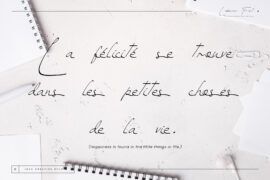 La félicité se trouve
dans les petites choses
de la vie.
(happiness is found in the little things in life.)